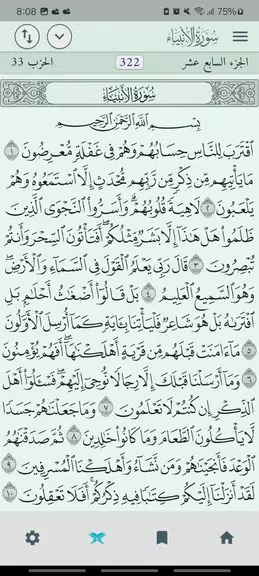 8:08 75%
سُورَةُ الأَنبِيَاءِ
الجزء السابع عشر 322 الحزب 33
سُورَةُ الأَنبِيَاءِ
بِسْمِ اللَّهِ الرَّحْمَٰنِ الرَّحِيمِ
ٱقْتَرَبَ لِلنَّاسِ حِسَابُهُمْ وَهُمْ فِي غَفْلَةٍ مُّعْرِضُونَ ١
مَا يَأْتِيهِم مِّن ذِكْرٍ مِّن رَّبِّهِم مُّحْدَثٍ إِلَّا ٱسْتَمَعُوهُ وَهُمْ
يَلْعَبُونَ ٢ لَاهِيَةً قُلُوبُهُمْ وَأَسَرُّوا۟ ٱلنَّجْوَى ٱلَّذِينَ
ظَلَمُوا۟ هَلْ هَٰذَآ إِلَّا بَشَرٌ مِّثْلُكُمْ أَفَتَأْتُونَ ٱلسِّحْرَ وَأَنتُمْ
تُبْصِرُونَ ٣ قَالَ رَبِّي يَعْلَمُ ٱلْقَوْلَ فِي ٱلسَّمَآءِ وَٱلْأَرْضِ
وَهُوَ ٱلسَّمِيعُ ٱلْعَلِيمُ ٤ بَلْ قَالُوٓا۟ أَضْغَٰثُ أَحْلَٰمٍ بَلِ
ٱفْتَرَىٰهُ بَلْ هُوَ شَاعِرٌ فَلْيَأْتِنَا بِـَٔايَةٍ كَمَآ أُرْسِلَ ٱلْأَوَّلُونَ
٥ مَآ ءَامَنَتْ قَبْلَهُم مِّن قَرْيَةٍ أَهْلَكْنَٰهَآ أَفَهُمْ يُؤْمِنُونَ
٦ وَمَآ أَرْسَلْنَا قَبْلَكَ إِلَّا رِجَالًا نُّوحِيٓ إِلَيْهِمْ فَسْـَٔلُوٓا۟ أَهْلَ
ٱلذِّكْرِ إِن كُنتُمْ لَا تَعْلَمُونَ ٧ وَمَا جَعَلْنَٰهُمْ جَسَدًا
لَّا يَأْكُلُونَ ٱلطَّعَامَ وَمَا كَانُوا۟ خَٰلِدِينَ ٨ ثُمَّ صَدَقْنَٰهُمُ
ٱلْوَعْدَ فَأَنجَيْنَٰهُمْ وَمَن نَّشَآءُ وَأَهْلَكْنَا ٱلْمُسْرِفِينَ ٩
لَقَدْ أَنزَلْنَآ إِلَيْكُمْ كِتَٰبًا فِيهِ ذِكْرُكُمْ أَفَلَا تَعْقِلُونَ ١٠